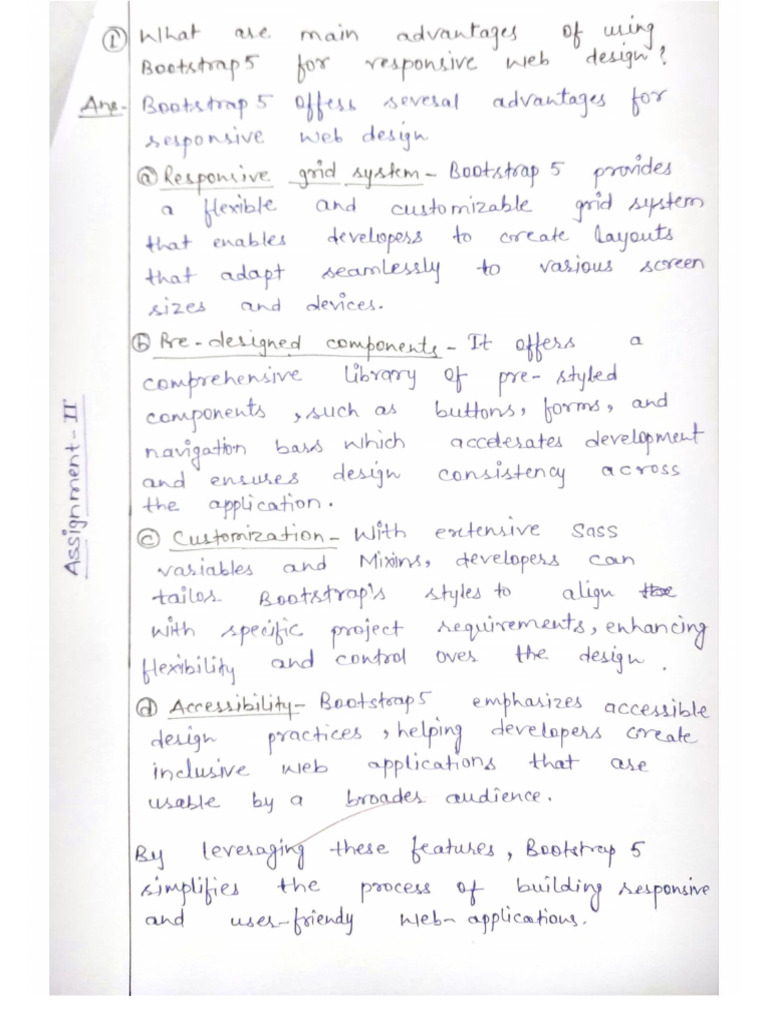 Assignment-II
① What are main advantages of using
Bootstrap5 for responsive web design?
Ans- Bootstrap 5 offers several advantages for
responsive web design
ⓐ Responsive grid system - Bootstrap 5 provides
a flexible and customizable grid system
that enables developers to create layouts
that adapt seamlessly to various screen
sizes and devices.
ⓑ Pre-designed components - It offers a
comprehensive library of pre-styled
components, such as buttons, forms, and
navigation bars which accelerates development
and ensures design consistency across
the application.
ⓒ Customization - With extensive Sass
variables and Mixins, developers can
tailor Bootstrap's styles to align
with specific project requirements, enhancing
flexibility and control over the design.
ⓓ Accessibility - Bootstrap5 emphasizes accessible
design practices, helping developers create
inclusive web applications that are
usable by a broader audience.
By leveraging these features, Bootstrap 5
simplifies the process of building responsive
and user-friendly web-applications.